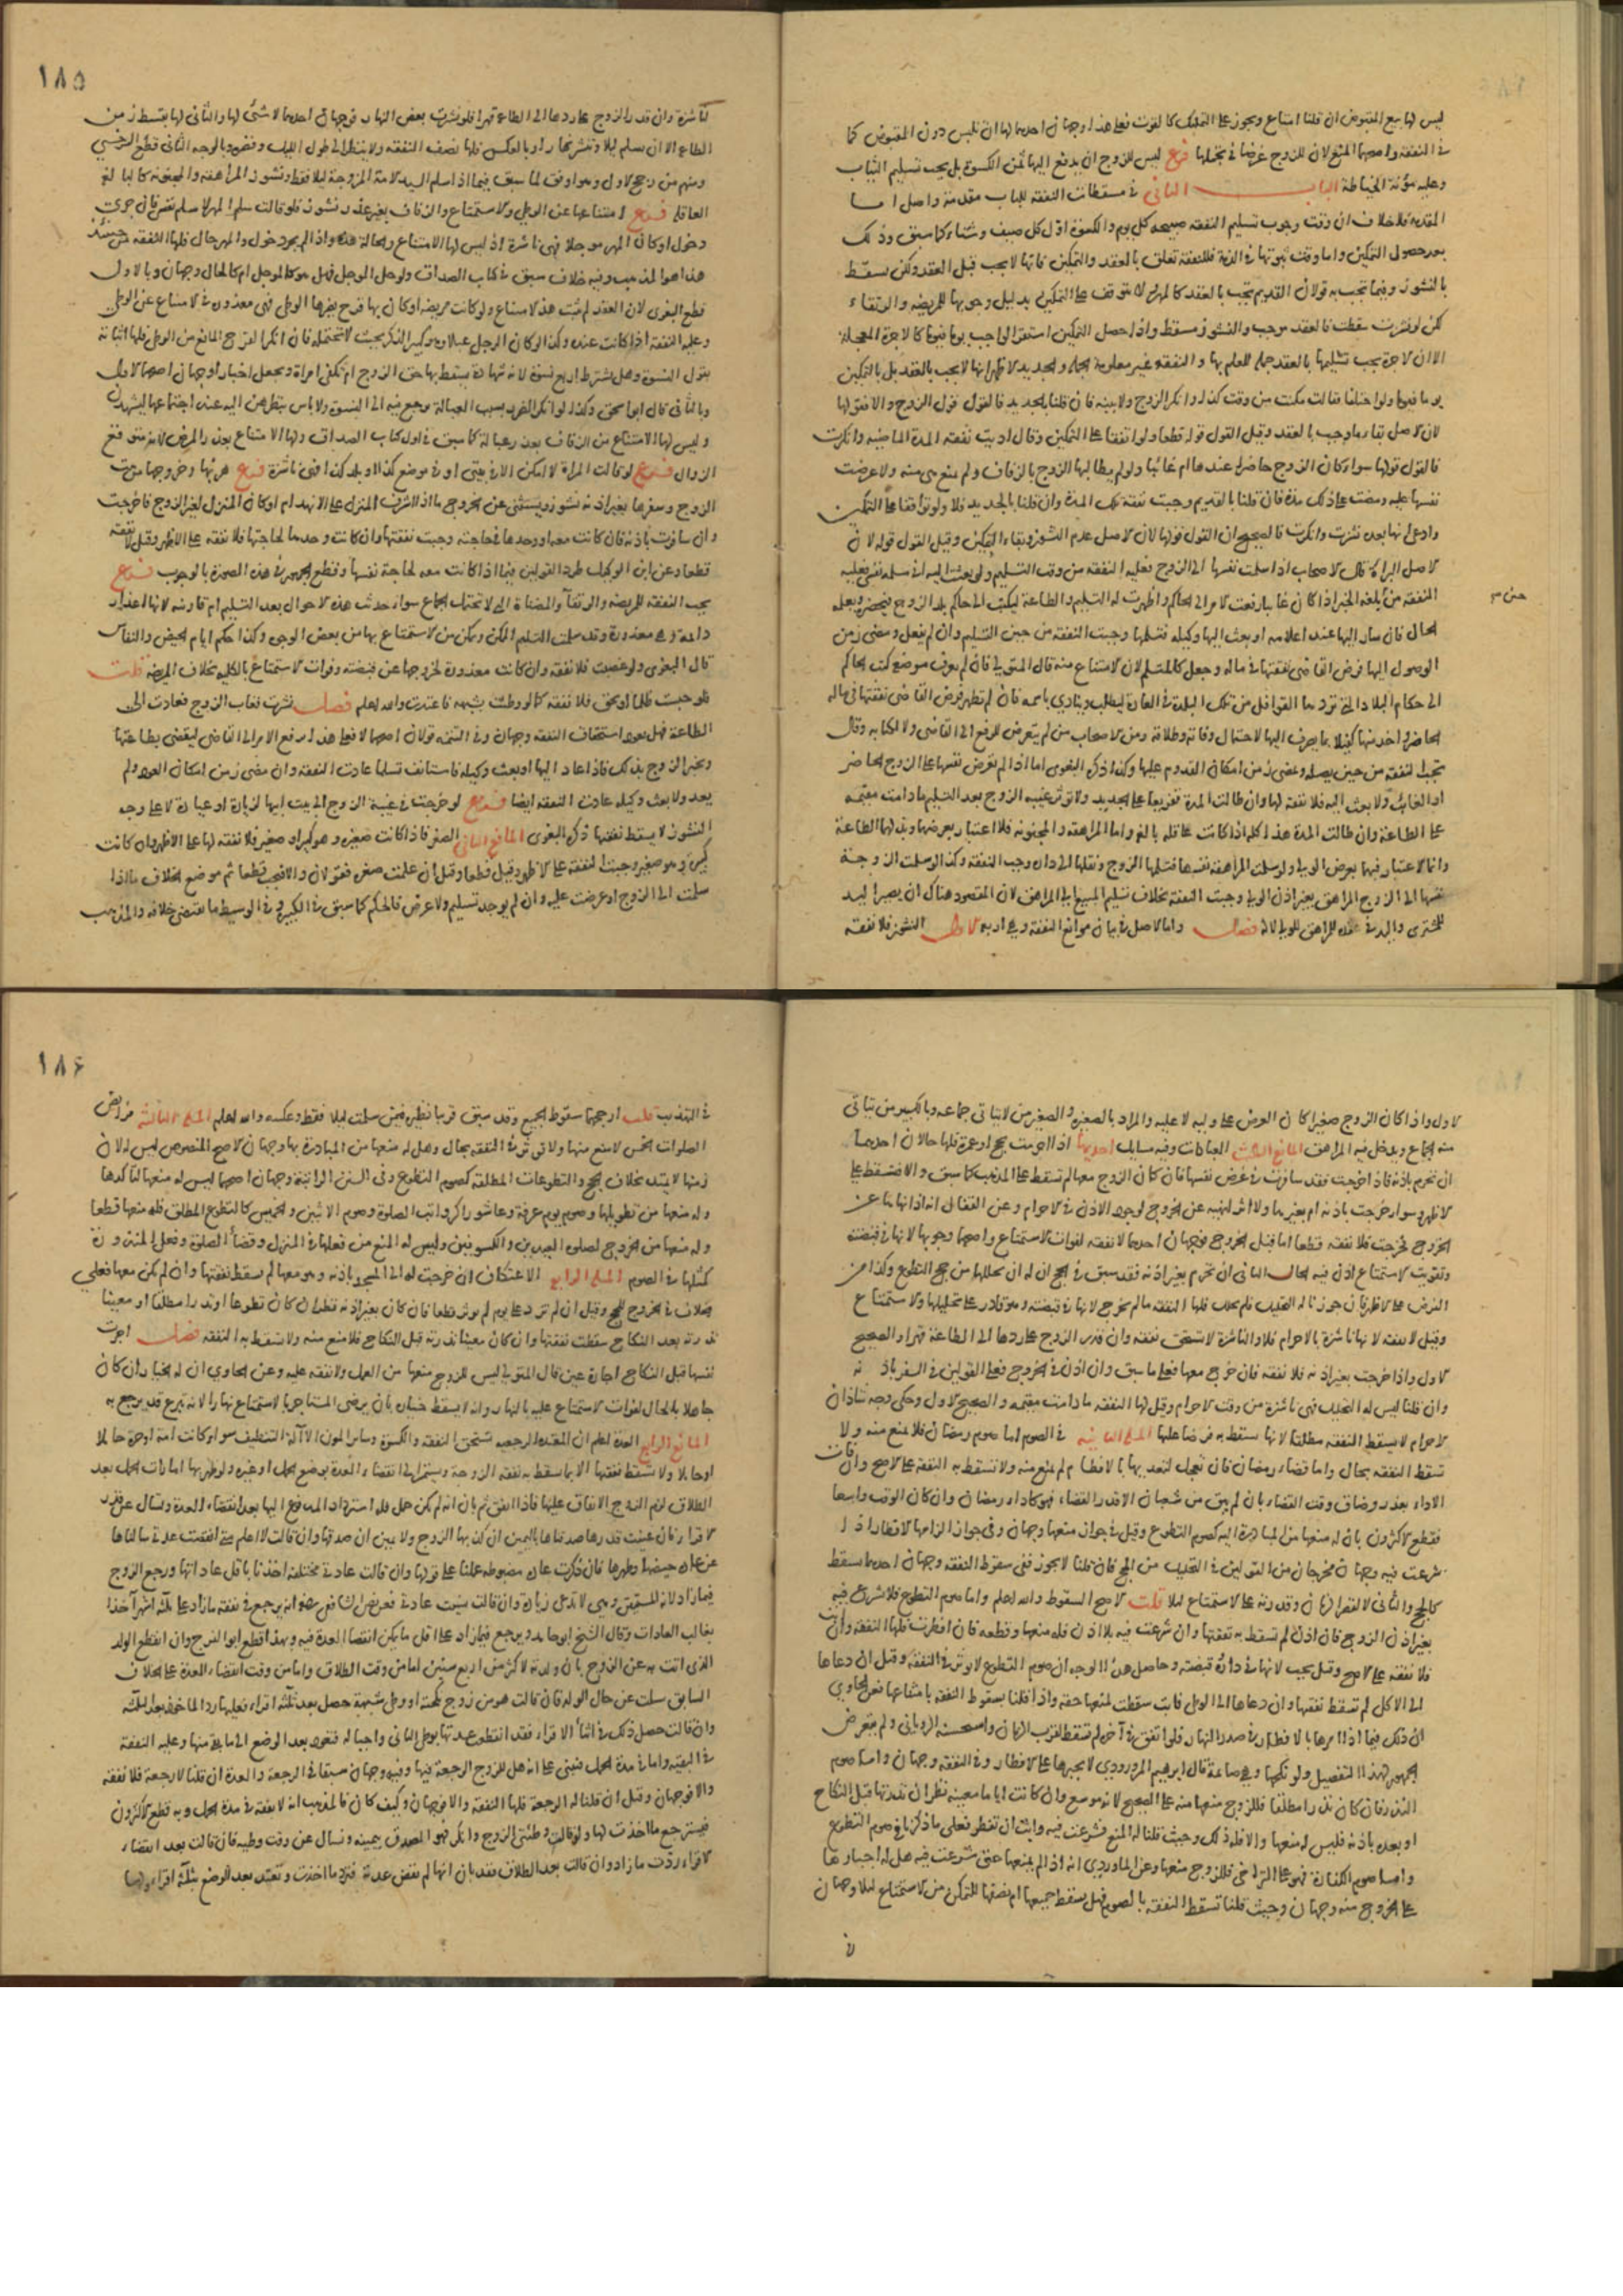 ليس لها بيع المقبوض ان قلنا امتناع ويجوز على التمليك كالقوت فعلى هذا وجهان احدهما لها ان تلبس دون المقبوض كما
في النفقة واصحهما المنع لان للزوج غرضا في تجملها فرع ليس للزوج ان يدفع اليها ثمن الكسوة بل يجب تسليم الثياب
وعليه مؤنة الخياطة الباب الثاني في مسقطات النفقة للباب مقدمة واصل اما
المقدمة فلا خلاف ان وقت وجوب تسليم النفقة صبيحة كل يوم والكسوة اول كل صيف وشتاء كما سبق وذلك
بعد حصول التمكين واما وقت ثبوتها في الذمة فللنفقة تعلق بالعقد والتمكين فانها لا يجب قبل العقد ولكن يسقط
بالنشوز وفيما تجب به قولان القديم تجب بالعقد كالمهر لا يتوقف على التمكين بدليل وجوبها للمريضة والرتقاء
لكن لو نشزت سقطت فالعقد موجب والنشوز مسقط واذا حصل التمكين استقر الواجب يوما فيوما كالاجرة المعجلة
الا ان الاجرة يجب تسليمها بالعقد جملة للعلم بها والنفقة غير معلومة الجملة والجديد الاظهر انها لا يجب بالعقد بل بالتمكين
يوما فيوما ولو اختلفا فقالت مكنت من وقت كذا وانكر الزوج ولا بينة فان قلنا بالجديد فالقول قول الزوج والا فقولها
لان الاصل بقاء ما وجب بالعقد وقيل القول قوله قطعا ولو اتفقا على التمكين وقال اديت نفقة المدة الماضية وانكرت
فالقول قولها سواء كان الزوج حاضرا عندها ام غائبا ولو لم يطالبها الزوج بالزفاف ولم تمنع هي منه ولا عرضت
نفسها عليه ومضت على ذلك مدة فان قلنا بالقديم وجبت نفقة تلك المدة وان قلنا بالجديد فلا ولو توافقا على التمكين
وادعى انها بعده نشزت وانكرت فالصحيح ان القول قولها لان الاصل عدم النشوز وبقاء التمكين وقيل القول قوله لان
الاصل البراءة قال الاصحاب اذا سلمت نفسها الى الزوج فعليه النفقة من وقت التسليم ولو بعثت اليه اني مسلمة نفسي فعليه
النفقة من بلغه الخبر اذا كان غائبا رفعت الامر الى الحاكم واظهرت له التسليم والطاعة ليكتب الى حاكم بلد الزوج فيحضره ويعلمه
الحال فان سار اليها عند اعلامه او بعث اليها وكيله فتسلمها وجبت النفقة من حين التسليم وان لم يفعل ومضى زمن
الوصول اليها فرض القاضي نفقتها في ماله وجعل كالمتسلم لان الامتناع منه قال المتولي فان لم يعرف موضعه كتب الحاكم
الى حكام البلاد التي تردها القوافل من تلك البلدة في العادة ليطلب وينادي باسمه فان لم يظهر فرض القاضي نفقتها في ماله
الحاضر واخذ منها كفيلا بما يصرف اليها لاحتمال وفاته وطلاقه ومن الاصحاب من لم يتعرض للرفع الى القاضي ولا لكتابه وقال
تجب النفقة من حين يصله ومضي زمن امكان القدوم عليها وكذا ذكره البغوي اما اذا لم تعرض نفسها على الزوج الحاضر
او الغائب ولا بعثت اليه فلا نفقة لها وان طالت المدة تفريعا على الجديد ولا تؤثر غيبة الزوج بعد التسليم ما دامت مقيمة
على الطاعة وان طالت المدة هذا كله اذا كانت عاقلة بالغة واما المراهقة والمجنونة فلا اعتبار بعرضهما وبذلهما الطاعة
وانما الاعتبار فيهما بعرض الولي ولو سلمت المراهقة نفسها فتسلمها الزوج ونقلها الى داره وجب النفقة وكذا لو سلمت الزوجة
نفسها الى الزوج المراهق بغير اذن الولي وجبت النفقة بخلاف تسليم المبيع الى المراهق لان المقصود هناك ان يصير اليد
للمشتري واليد في عقد المراهق للولي لا له فصل واما الاصل في بيان موانع النفقة وهي اربعة الاول النشوز فلا نفقة
١٨٥
لناشزة وان قدر الزوج على ردها الى الطاعة قهرا فلو نشزت بعض النهار فوجهان احدهما لا شئ لها والثاني لها بقسط زمن
الطاعة الا ان تسلم ليلا وتنشز نهارا او بالعكس فلها نصف النفقة ولا ينظر الى طول الليل وقصره وبالوجه الثاني قطع السرخسي
ومنهم من رجح الاول وهو اوفق لما سبق فيما اذا سلم السيد الامة المزوجة ليلا فقط ونشوز المراهقة والمجنونة كالبالغة
العاقلة فرع امتناعها عن الوطئ والاستمتاع والزفاف بغير عذر نشوز فلو قالت سلم المهر لاسلم نفسي فان جرى
دخول او كان المهر مؤجلا فهي ناشزة اذ ليس لها الامتناع والحالة هذه واذا لم يجر دخول والمهر حال فلها النفقة من حينئذ
هذا هو المذهب وفيه خلاف سبق في كتاب الصداق ولو حل المؤجل فهل هو كالمؤجل ام كالحال وجهان وبالاول
قطع البغوي لان العقد لم يثبت هذا الامتناع ولو كانت مريضة او كان بها قرح يضرها الوطئ فهي معذورة في الامتناع عن الوطئ
وعليه النفقة اذا كانت عنده وكذا لو كان الرجل عبلا وهو كبير الذكر بحيث لا تحتمله فان انكر القرح المانع من الوطئ فلها اثباته
بقول النسوة وهل يشترط اربع نسوة لانه شهادة يسقط بها حق الزوج ام تكفي امراة ويجعل اخبارا وجهان اصحهما الاول
وبالثاني قال ابو اسحق وكذا لو انكر الضرر بسبب العبالة يرجع فيه الى النسوة ولا باس بنظرهن اليه عند اجتماعهما ليشهدن
وليس لها الامتناع من الزفاف بعذر عبالته كما سبق في اول كتاب الصداق ولها الامتناع بعذر المرض لانه متوقع
الزوال فرع لو قالت المراة لا امكن الا في بيتي او في موضع كذا او بلد كذا فهي ناشزة فرع هربها وخروجها من بيت
الزوج وسفرها بغير اذنه نشوز ويستثنى عن الخروج ما اذا اشرف المنزل على الانهدام او كان المنزل لغير الزوج فاخرجت
وان سافرت باذنه فان كانت معه او وحدها في حاجته وجبت نفقتها وان كانت وحدها لحاجتها فلا نفقة على الاظهر وقيل لا نفقة
قطعا وعن ابن الوكيل طرد القولين فيما اذا كانت معه لحاجة نفسها وقطع الجمهور في هذه الصورة بالوجوب فرع
يجب النفقة للمريضة والرتقاء والمضناة التي لا تحتمل الجماع سواء حدثت هذه الاحوال بعد التسليم ام قارنته لانها اعذار
دائمة وهي معذورة وقد سلمت التسليم الممكن ويمكن من الاستمتاع بها من بعض الوجوه وكذا حكم ايام الحيض والنفاس
قال البغوي ولو غصبت فلا نفقة وان كانت معذورة لخروجها عن قبضته وفوات الاستمتاع بالكلية بخلاف المريضة قلت
فلو حبست ظلما او بحق فلا نفقة كما لو وطئت بشبهة فاعتدت والله اعلم فصل نشزت فغاب الزوج فعادت الى
الطاعة فهل يعود استحقاق النفقة وجهان وفي التتمة قولان اصحهما لا فعلى هذا يرفع الامر الى القاضي ليقضي بطاعتها
ويخبر الزوج بذلك فاذا عاد اليها او بعث وكيله فاستانف تسلمها عادت النفقة وان مضى زمن امكان العود ولم
يعد ولا بعث وكيله عادت النفقة ايضا فرع لو خرجت في غيبة الزوج الى بيت ابيها لزيارة او عيادة لا على وجه
النشوز لا يسقط نفقتها ذكره البغوي المانع الثاني الصغر فاذا كانت صغيرة وهو كبير او صغير فلا نفقة لها على الاظهر وان كانت
كبيرة وهو صغير وجبت النفقة على الاظهر وقيل قطعا وقيل ان علمت صغره فقولان والا فيجب قطعا ثم موضع الخلاف ما اذا
سلمت الى الزوج او عرضت عليه وان لم يوجد تسليم ولا عرض فالحكم كما سبق في الكبيرة وفي الوسيط ما يقتضي خلافه والمذهب
الاول واذا كان الزوج صغيرا كان العرض على وليه لا عليه والمراد بالصغيرة والصغير من لا يتاتى جماعه وبالكبير من يتاتى
منه الجماع ويدخل فيه المراهق المانع الثالث العبادات وفيه مسايل احديها اذا احرمت بحج او عمرة فلها حالان احدهما
ان تحرم باذنه فاذا خرجت فقد سافرت في غرض نفسها فان كان الزوج معها لم تسقط على المذهب كما سبق والا فتسقط على
الاظهر وسواء خرجت باذنه ام بغيرهما ولا اثر لنهيه عن الخروج لوجود الاذن في الاحرام وعن القفال انه اذا نهاها عن
الخروج فخرجت فلا نفقة قطعا اما قبل الخروج فوجهان احدهما لا نفقة لفوات الاستمتاع واصحهما وجوبها لانها في قبضته
وتفويت الاستمتاع اذن فيه الحال الثاني ان تحرم بغير اذنه فقد سبق في الحج ان له ان يحللها من حج التطوع وكذا من
الفرض على الاظهر فان جوزنا له التحليل فلم يحلل فلها النفقة ما لم تخرج لانها في قبضته وهو قادر على تحليلها والاستمتاع
وقيل لا نفقة لانها ناشزة بالاحرام فلا والناشزة لا تستحق نفقة وان قدر الزوج على ردها الى الطاعة قهرا والصحيح
الاول واذا خرجت بغير اذنه فلا نفقة فان خرج معها فعلى ما سبق وان اذن في الخروج فعلى القولين في السفر باذنه
وان قلنا ليس له التحليل فهي ناشزة من وقت الاحرام وقيل لها النفقة ما دامت مقيمة والصحيح الاول وحكي وجه شاذ ان
الاحرام لا يسقط النفقة مطلقا لانها تسقط به فرضا عليها المسئلة الثانية في الصوم اما صوم رمضان فلا منع منه ولا
تسقط النفقة بحال واما قضاء رمضان فان تعجل لتعديها بالافطار لم يمنع منه ولا تسقط به النفقة على الاصح وان فات
الاداء بعذر وضاق وقت القضاء بان لم يبق من شعبان الا قدر القضاء فهو كاداء رمضان وان كان الوقت واسعا
فقطع الاكثرون بان له منعها من المبادرة اليه كصوم التطوع وقيل في جواز منعها وجهان وفي جواز الزامها الافطار اذا
شرعت فيه وجهان مخرجان من القولين في التحليل من الحج فان قلنا لا يجوز ففي سقوط النفقة وجهان احدهما تسقط
كالحج والثاني لا لقصر الزمان وقدرته على الاستمتاع ليلا قلت الاصح السقوط والله اعلم واما صوم التطوع فلا تشرع فيه
بغير اذن الزوج فان اذن لم تسقط به نفقتها وان شرعت فيه بلا اذن فله منعها وقطعه فان افطرت فلها النفقة وان ابت
فلا نفقة على الاصح وقيل يجب لانها في داره وقبضته وحاصل هذا الوجه ان صوم التطوع لا يؤثر في النفقة وقيل ان دعاها
الى الاكل لم تسقط نفقتها وان دعاها الى الوطئ فابت سقطت لمنعها حقه واذا قلنا بسقوط النفقة بامتناعها فعن الحاوي
ان ذلك فيما اذا امرها بالافطار في صدر النهار فلو اتفق في آخره لم تسقط لقرب الزمان واستحسنه الروياني ولم يتعرض
الجمهور لهذا التفصيل ولو نكحها وهي صائمة قال ابرهيم المروروذي لا يجبرها على الافطار وفي النفقة وجهان واما صوم
النذر فان كان نذرا مطلقا فللزوج منعها منه على الصحيح لانه موسع وان كانت اياما معينة نظر ان نذرتها قبل النكاح
او بعده باذنه فليس له منعها والا فله ذلك وحيث قلنا له المنع فشرعت فيه وابت ان تفطر فعلى ما ذكرنا في صوم التطوع
واما صوم الكفارة فهو على التراخي فللزوج منعها وعن الماوردي انه اذا لم يمنعها حتى شرعت فيه هل له اجبارها
على الخروج منه وجهان وحيث قلنا تسقط النفقة بالصوم فهل يسقط جميعها ام نصفها للتمكن من الاستمتاع ليلا وجهان
١٨٦
في التهذيب قلت ارجحهما سقوط الجميع وقد سبق قريبا نظيره فيمن سلمت ليلا فقط وعكسه والله اعلم المسئلة الثالثة فرايض
الصلوات الخمس لا منع منها ولا تؤثر في النفقة بحال وهل له منعها من المبادرة بها وجهان الاصح المنصوص ليس له لان
زمنها لا يمتد بخلاف الحج والتطوعات المطلقة كصوم التطوع وفي السنن الراتبة وجهان اصحهما ليس له منعها لتاكدها
وله منعها من تطويلها وصوم يوم عرفة وعاشوراء كرواتب الصلوة وصوم الاثنين والخميس كالتطوع المطلق فله منعها قطعا
وله منعها من الخروج لصلوة العيدين والكسوفين وليس له المنع من فعلها في المنزل وقضاء الصلوة وفعل المنذورة
كمثلها في الصوم المسئلة الرابعة الاعتكاف ان خرجت له الى المسجد باذنه وهو معها لم تسقط نفقتها وان لم يكن معها فعلى
الخلاف في الخروج للحج وقيل ان لم تزد على يوم لم يؤثر قطعا فان كان بغير اذنه نظر ان كان تطوعا او نذرا مطلقا او معينا
نذرته بعد النكاح سقطت نفقتها وان كان معينا نذرته قبل النكاح فلا منع منه ولا تسقط به النفقة فصل اجرت
نفسها قبل النكاح اجارة عين قال المتولي ليس للزوج منعها من العمل ولا نفقة عليه وعن الحاوي ان له الخيار ان كان
جاهلا بالحال لفوات الاستمتاع عليه بالنهار وانه لا يسقط خياره بان يرضى المستاجر بالاستمتاع نهارا لانه تبرع قد يرجع به
المانع الرابع العدة اعلم ان المعتدة الرجعية تستحق النفقة والكسوة وساير المؤن الا آلة التنظيف سواء كانت امة او حرة حاملا
او حائلا ولا تسقط نفقتها الا بما يسقط به نفقة الزوجة وتستمر الى انقضاء العدة بوضع الحمل او غيره ولو ظهر بها امارات الحمل بعد
الطلاق لزم الزوج الانفاق عليها فاذا انفق ثم بان انه لم يكن حمل فله استرداد المدفوع اليها بعد انقضاء العدة وتسال عن قدر
الاقراء فان عينت قدرها صدقناها باليمين ان كذبها الزوج ولا يمين ان صدقها وان قالت لا اعلم متى انقضت عدتي سالناها
عن عادة حيضها وطهرها فان ذكرت عادة مضبوطة عملنا على قولها وان قالت عادتي مختلفة اخذنا باقل عاداتها ورجع الزوج
فيما زاد لانه المستيقن وهي لا تدعي زيادة وان قالت نسيت عادتي فعن نص الشافعي رضي الله عنه يرجع في نفقة ما زاد على ثلثة اشهر آخذا
بغالب العادات وقال الشيخ ابو حامد يرجع فيما زاد على اقل ما يمكن انقضاء العدة فيه وبهذا قطع ابو الفرج وان انقطع الولد
الذي اتت به عن الزوج بان ولدته لاكثر من اربع سنين اما من وقت الطلاق واما من وقت انقضاء العدة على الخلاف
السابق سئلت عن حال الولد فان قالت هو من زوج نكحته او وطئ شبهة حصل بعد ثلثة اقراء فعليها رد الماخوذ بعد الثلثة
وان قالت حصل ذلك في اثناء الاقراء فقد انقطع عدتها بوطئ الثاني واحباله فتعود بعد الوضع الى ما بقي منها وعليه النفقة
في البقية واما في مدة الحمل فيبنى على انه هل للزوج الرجعة فيها وفيه وجهان سبقا في الرجعة والعدة ان قلنا لا رجعة فلا نفقة
والا فوجهان وقيل ان قلنا له الرجعة فلها النفقة والا فوجهان وكيف كان فالمذهب انه لا نفقة في مدة الحمل وبه قطع الاكثرون
فيسترجع ما اخذت لها ولو قالت وطئني الزوج وانكر فهو المصدق بيمينه وتسال عن وقت وطيه فان قالت بعد انقضاء
الاقراء ردت ما زاد وان قالت بعد الطلاق فقد بان انها لم تقض عدته فترد ما اخذت وتعتد بعد الوضع بثلثة اقراء ولها